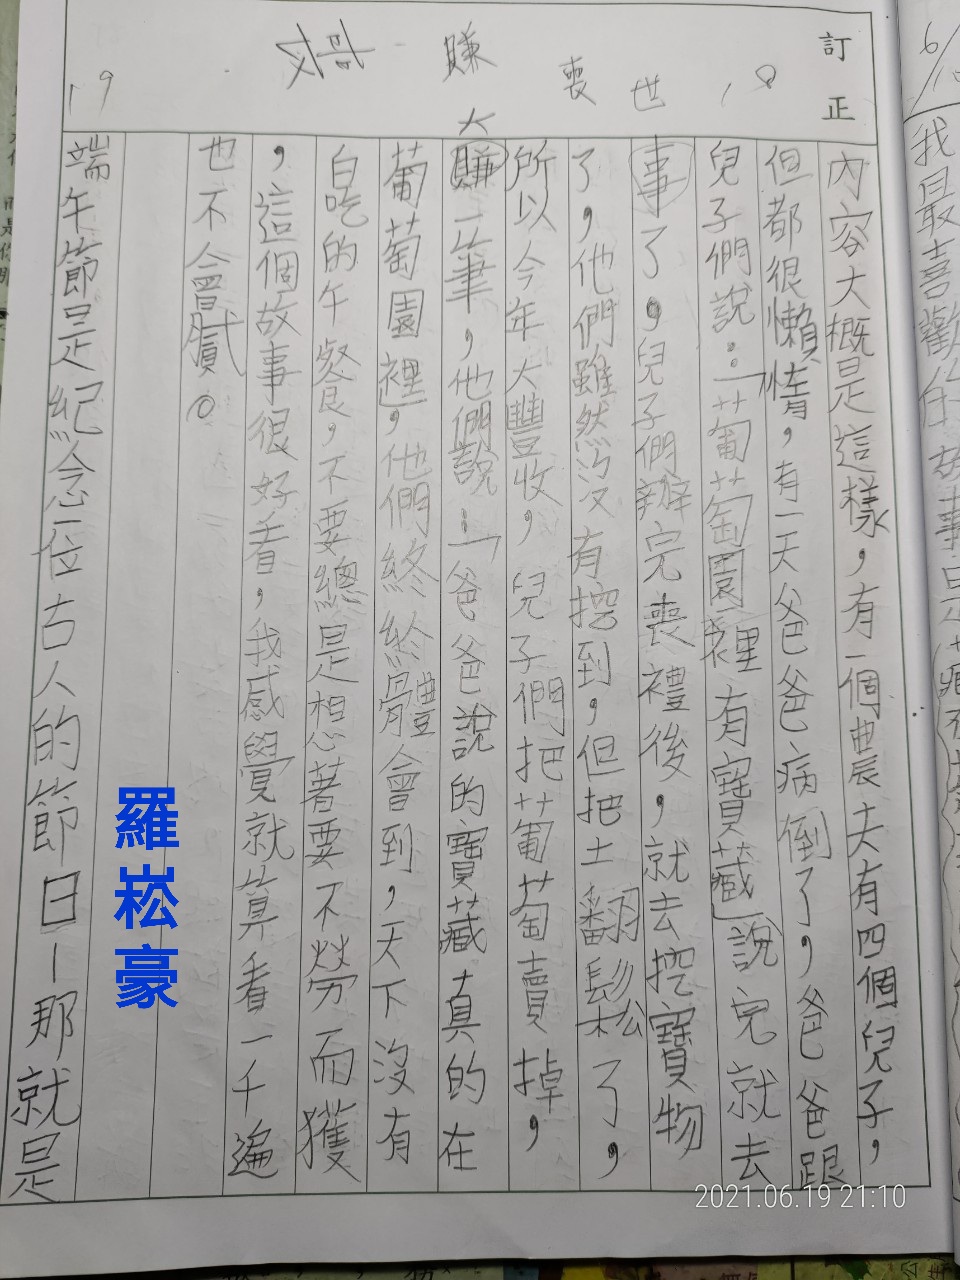 訂正
18
世
喪
賺
19
內容大概是這樣，有一個農夫有四個兒子，
但都很懶惰，有一天爸爸病倒了，爸爸跟
兒子們說：「葡萄園裡有寶藏」說完就去
事了，兒子們辦完喪禮後，就去挖寶物
了，他們雖然沒有挖到，但把土翻鬆了，
所以今年大豐收，兒子們把葡萄賣掉，
大賺一筆，他們說：「爸爸說的寶藏真的在
葡萄園裡」，他們終於體會到，天下沒有
白吃的午餐，不要總是想著要不勞而獲
，這個故事很好看，我感覺就算看一千遍
也不會膩。
端午節是紀念一位古人的節日—那就是
羅崧豪
6/
我最喜歡的故事是
2021.06.19 21:10